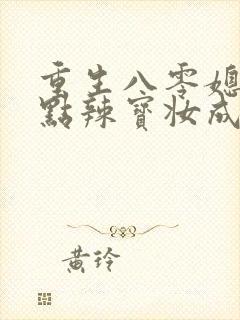 重生八零媳
點辣寶妝成
黃玲